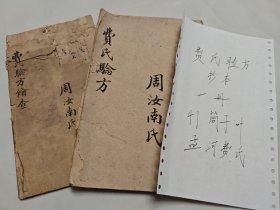 費氏驗方
周汝南氏
費氏驗方
周汝南氏
费氏验方
抄本
一册
筒子叶
孟河费氏